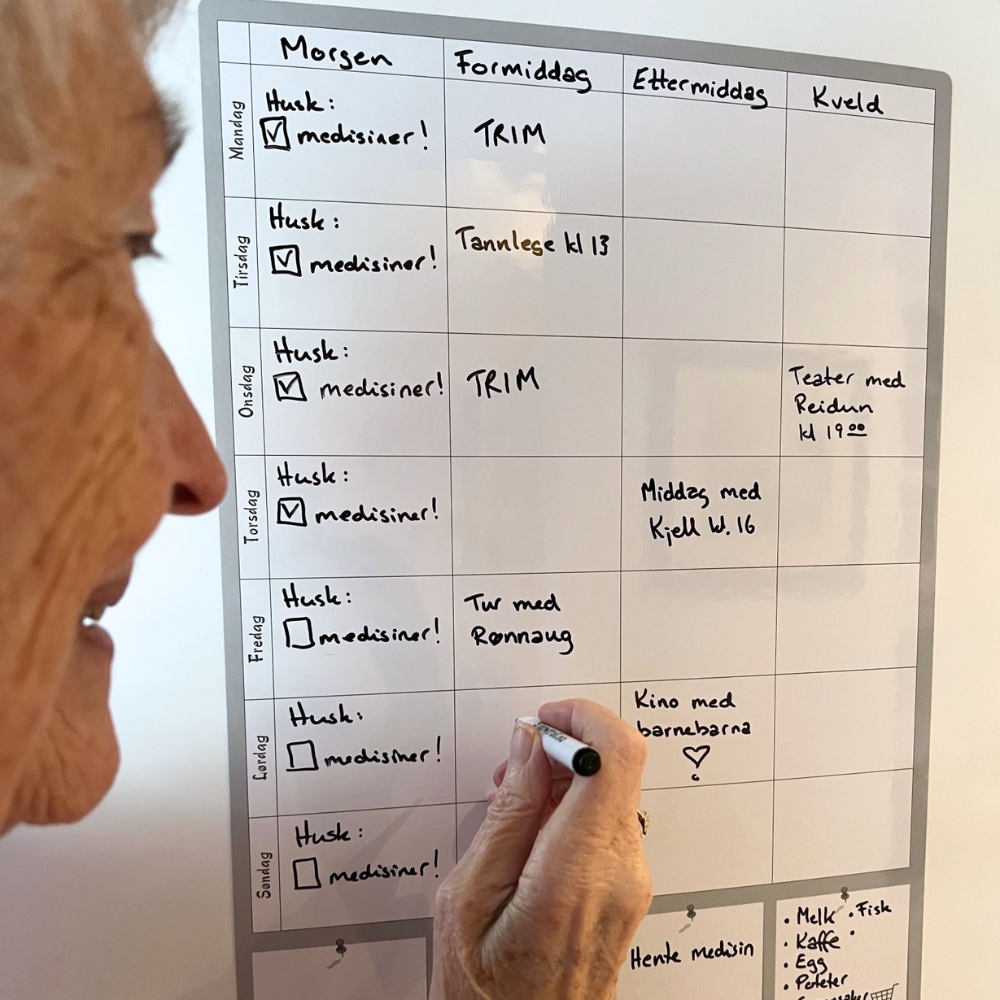 Morgen
Formiddag
Ettermiddag
Kveld
Mandag
Husk:
medisiner!
TRIM
Tirsdag
Husk:
medisiner!
Tannlege kl 13
Onsdag
Husk:
medisiner!
TRIM
Teater med
Reidun
kl 19 00
Torsdag
Husk:
medisiner!
Middag med
Kjell kl. 16
Fredag
Husk:
medisiner!
Tur med
Rønnaug
Lørdag
Husk:
medisiner!
Kino med
barnebarna
Søndag
Husk:
medisiner!
Hente medisin
• Melk • Fisk
• Kaffe •
• Egg
• Poteter